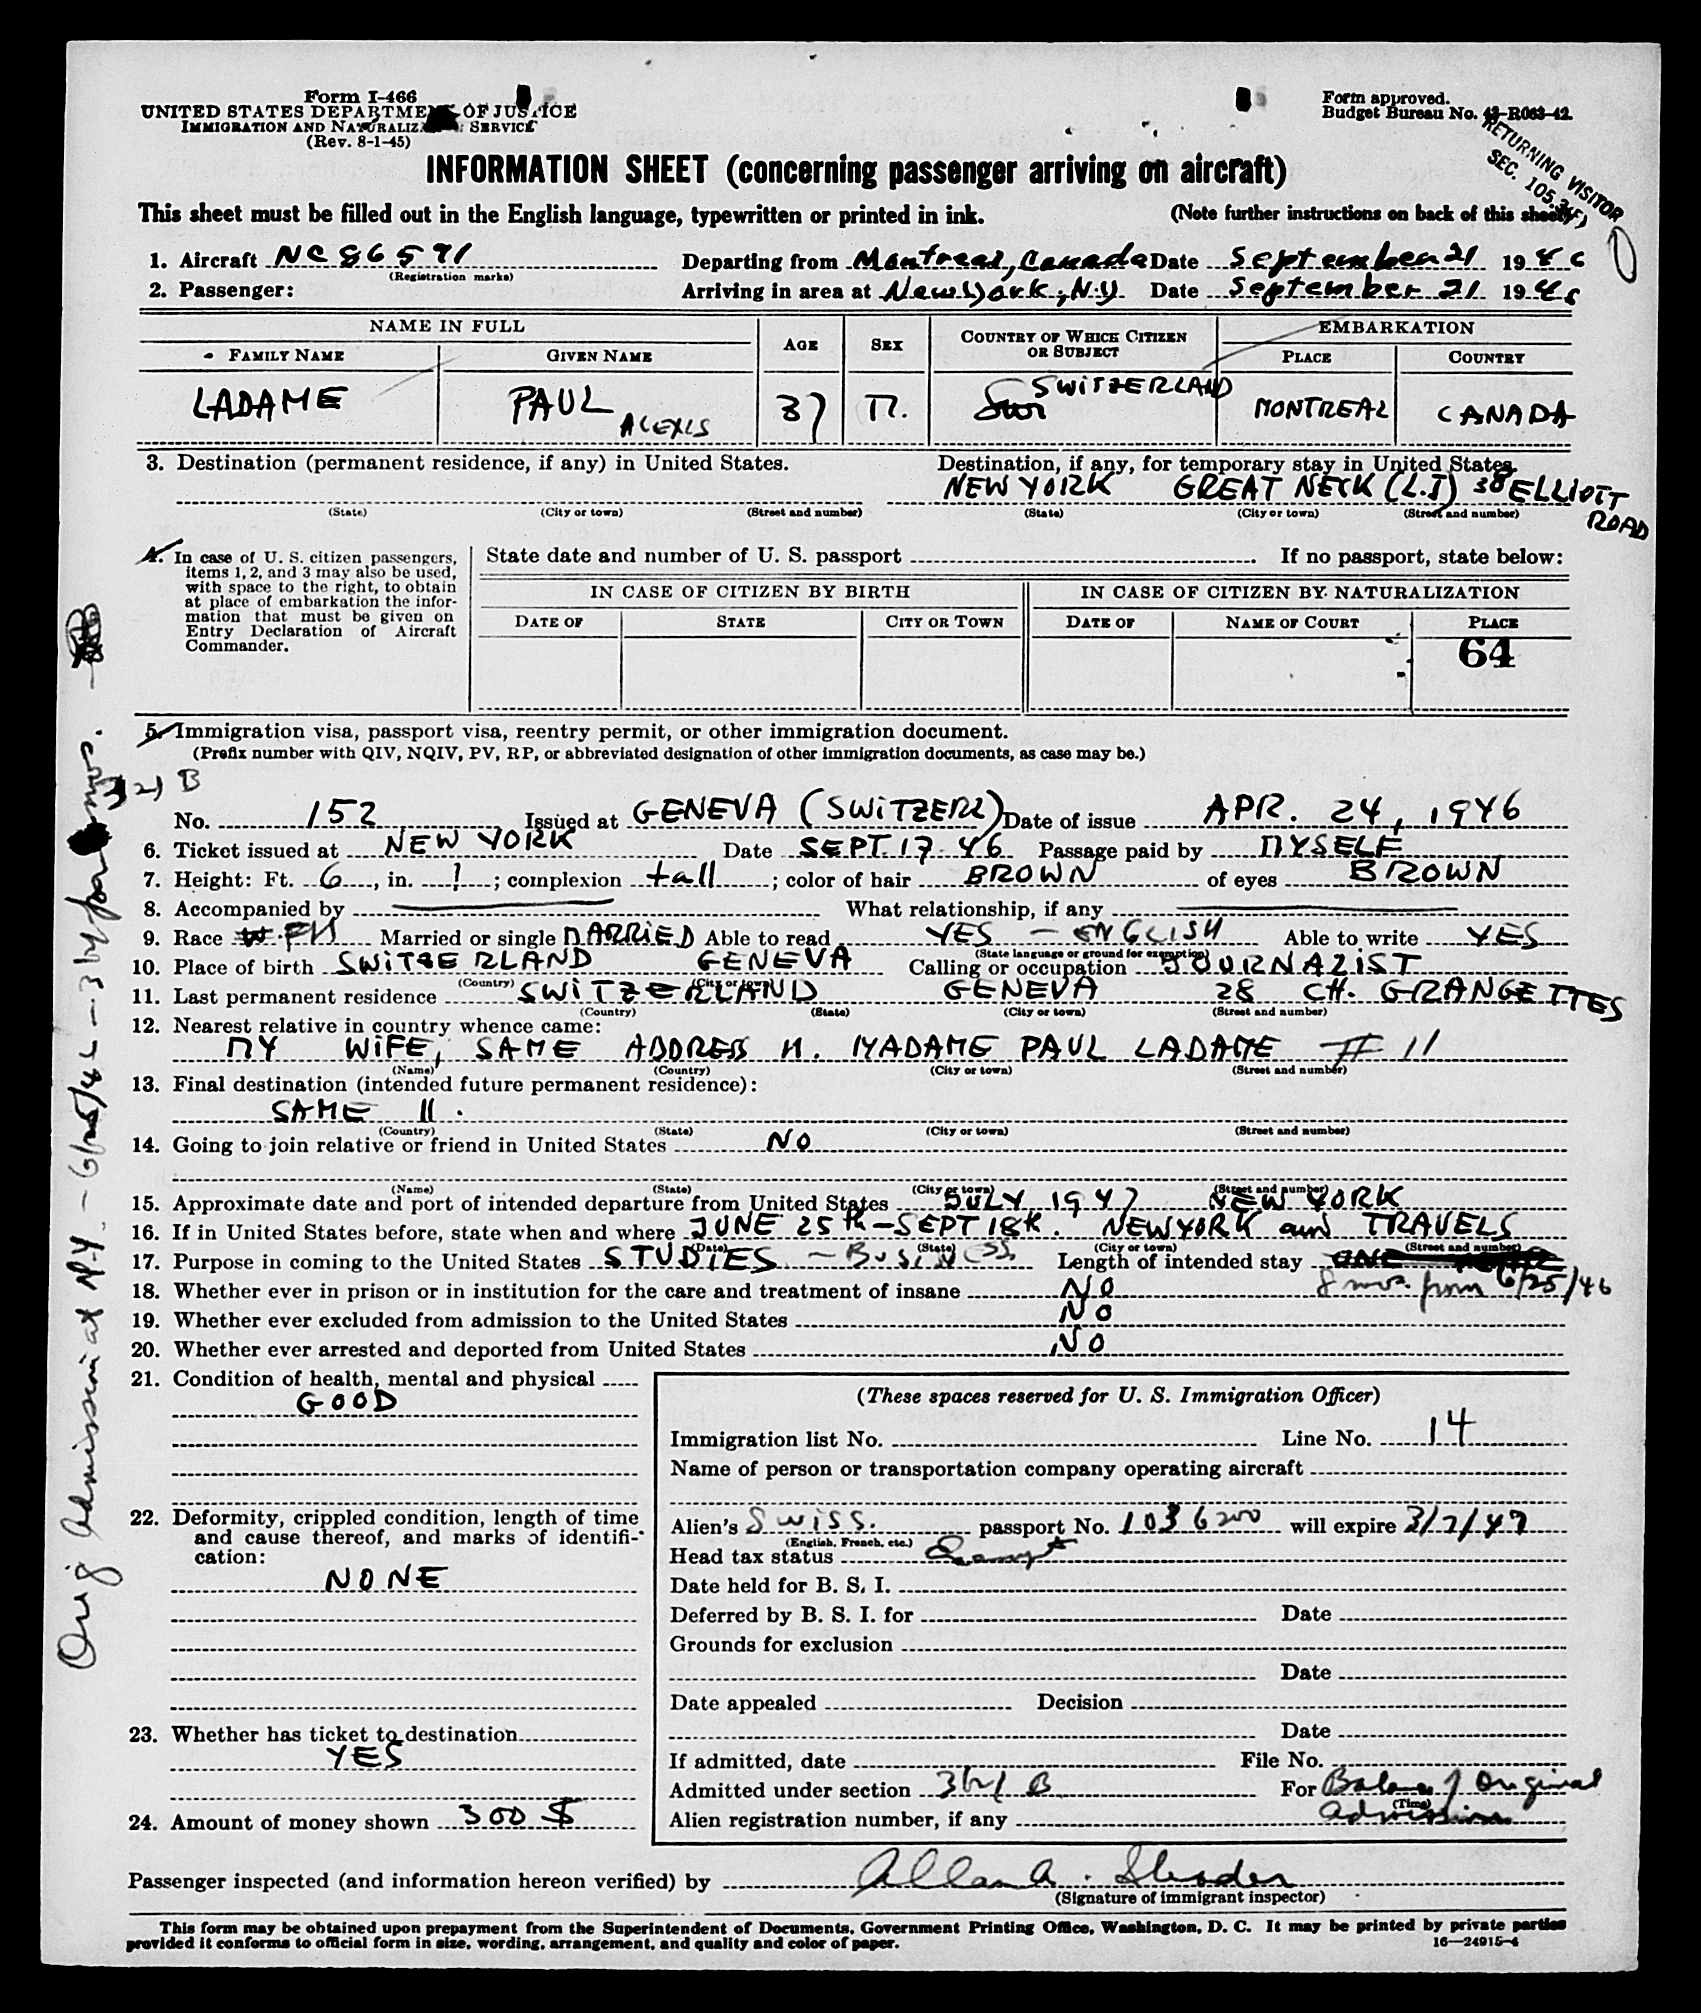 Form I-466
UNITED STATES DEPARTMENT OF JUSTICE
IMMIGRATION AND NATURALIZATION SERVICE
(Rev. 8-1-45)
Form approved.
Budget Bureau No. 43-R063-42.
RETURNING VISITOR
SEC. 105.3(F)
INFORMATION SHEET (concerning passenger arriving on aircraft)
This sheet must be filled out in the English language, typewritten or printed in ink. (Note further instructions on back of this sheet)
1. Aircraft NC 86591 Departing from Montreal, Canada Date September 21 1946
(Registration marks)
2. Passenger: Arriving in area at New York, N.Y. Date September 21 1946
NAME IN FULL AGE SEX COUNTRY OF WHICH CITIZEN OR SUBJECT EMBARKATION
FAMILY NAME GIVEN NAME PLACE COUNTRY
LADAME PAUL ALEXIS 37 M. SWITZERLAND MONTREAL CANADA
3. Destination (permanent residence, if any) in United States. Destination, if any, for temporary stay in United States.
NEW YORK GREAT NECK (L.I) 38 ELLIOTT ROAD
(State) (City or town) (Street and number) (State) (City or town) (Street and number)
4. In case of U. S. citizen passengers, items 1, 2, and 3 may also be used, with space to the right, to obtain at place of embarkation the information that must be given on Entry Declaration of Aircraft Commander.
State date and number of U. S. passport If no passport, state below:
IN CASE OF CITIZEN BY BIRTH IN CASE OF CITIZEN BY NATURALIZATION
DATE OF STATE CITY OR TOWN DATE OF NAME OF COURT PLACE
64
5. Immigration visa, passport visa, reentry permit, or other immigration document.
(Prefix number with QIV, NQIV, PV, RP, or abbreviated designation of other immigration documents, as case may be.)
3(2) B
No. 152 Issued at GENEVA (SWITZERL) Date of issue APR. 24, 1946
6. Ticket issued at NEW YORK Date SEPT 17. 46 Passage paid by MYSELF
7. Height: Ft. 6, in. 1; complexion tall; color of hair BROWN of eyes BROWN
8. Accompanied by What relationship, if any
9. Race Married or single MARRIED Able to read YES - ENGLISH Able to write YES
(State language or ground for exemption)
10. Place of birth SWITZERLAND GENEVA Calling or occupation JOURNALIST
(Country) (City or town)
11. Last permanent residence SWITZERLAND GENEVA 28 CH. GRANGETTES
(Country) (State) (City or town) (Street and number)
12. Nearest relative in country whence came:
MY WIFE, SAME ADDRESS MADAME PAUL LADAME # 11
(Name) (Country) (City or town) (Street and number)
13. Final destination (intended future permanent residence):
SAME 11.
(Country) (State) (City or town) (Street and number)
14. Going to join relative or friend in United States NO
(Name) (State) (City or town) (Street and number)
15. Approximate date and port of intended departure from United States JULY 1947 NEW YORK
16. If in United States before, state when and where JUNE 25th - SEPT 18th. NEW YORK and TRAVELS
(Date) (State) (City or town) (Street and number)
17. Purpose in coming to the United States STUDIES - BUSINESS Length of intended stay
8 mos. from 6/25/46
18. Whether ever in prison or in institution for the care and treatment of insane NO
19. Whether ever excluded from admission to the United States NO
20. Whether ever arrested and deported from United States NO
21. Condition of health, mental and physical
GOOD
22. Deformity, crippled condition, length of time and cause thereof, and marks of identification:
NONE
23. Whether has ticket to destination
YES
24. Amount of money shown 300 $
(These spaces reserved for U. S. Immigration Officer)
Immigration list No. Line No. 14
Name of person or transportation company operating aircraft
Alien's Swiss. passport No. 1036200 will expire 3/7/47
(English, French, etc.)
Head tax status Exempt
Date held for B. S. I.
Deferred by B. S. I. for Date
Grounds for exclusion
Date
Date appealed Decision
Date
If admitted, date File No.
Admitted under section 3(2) B For Balance of Original Admission
(Time)
Alien registration number, if any
Passenger inspected (and information hereon verified) by Allan A.
(Signature of immigrant inspector)
This form may be obtained upon prepayment from the Superintendent of Documents, Government Printing Office, Washington, D. C. It may be printed by private parties
provided it conforms to official form in size, wording, arrangement, and quality and color of paper.
16—24915-4
Orig Admission at N.Y. - 6/25/46 - 3(2) for mos.